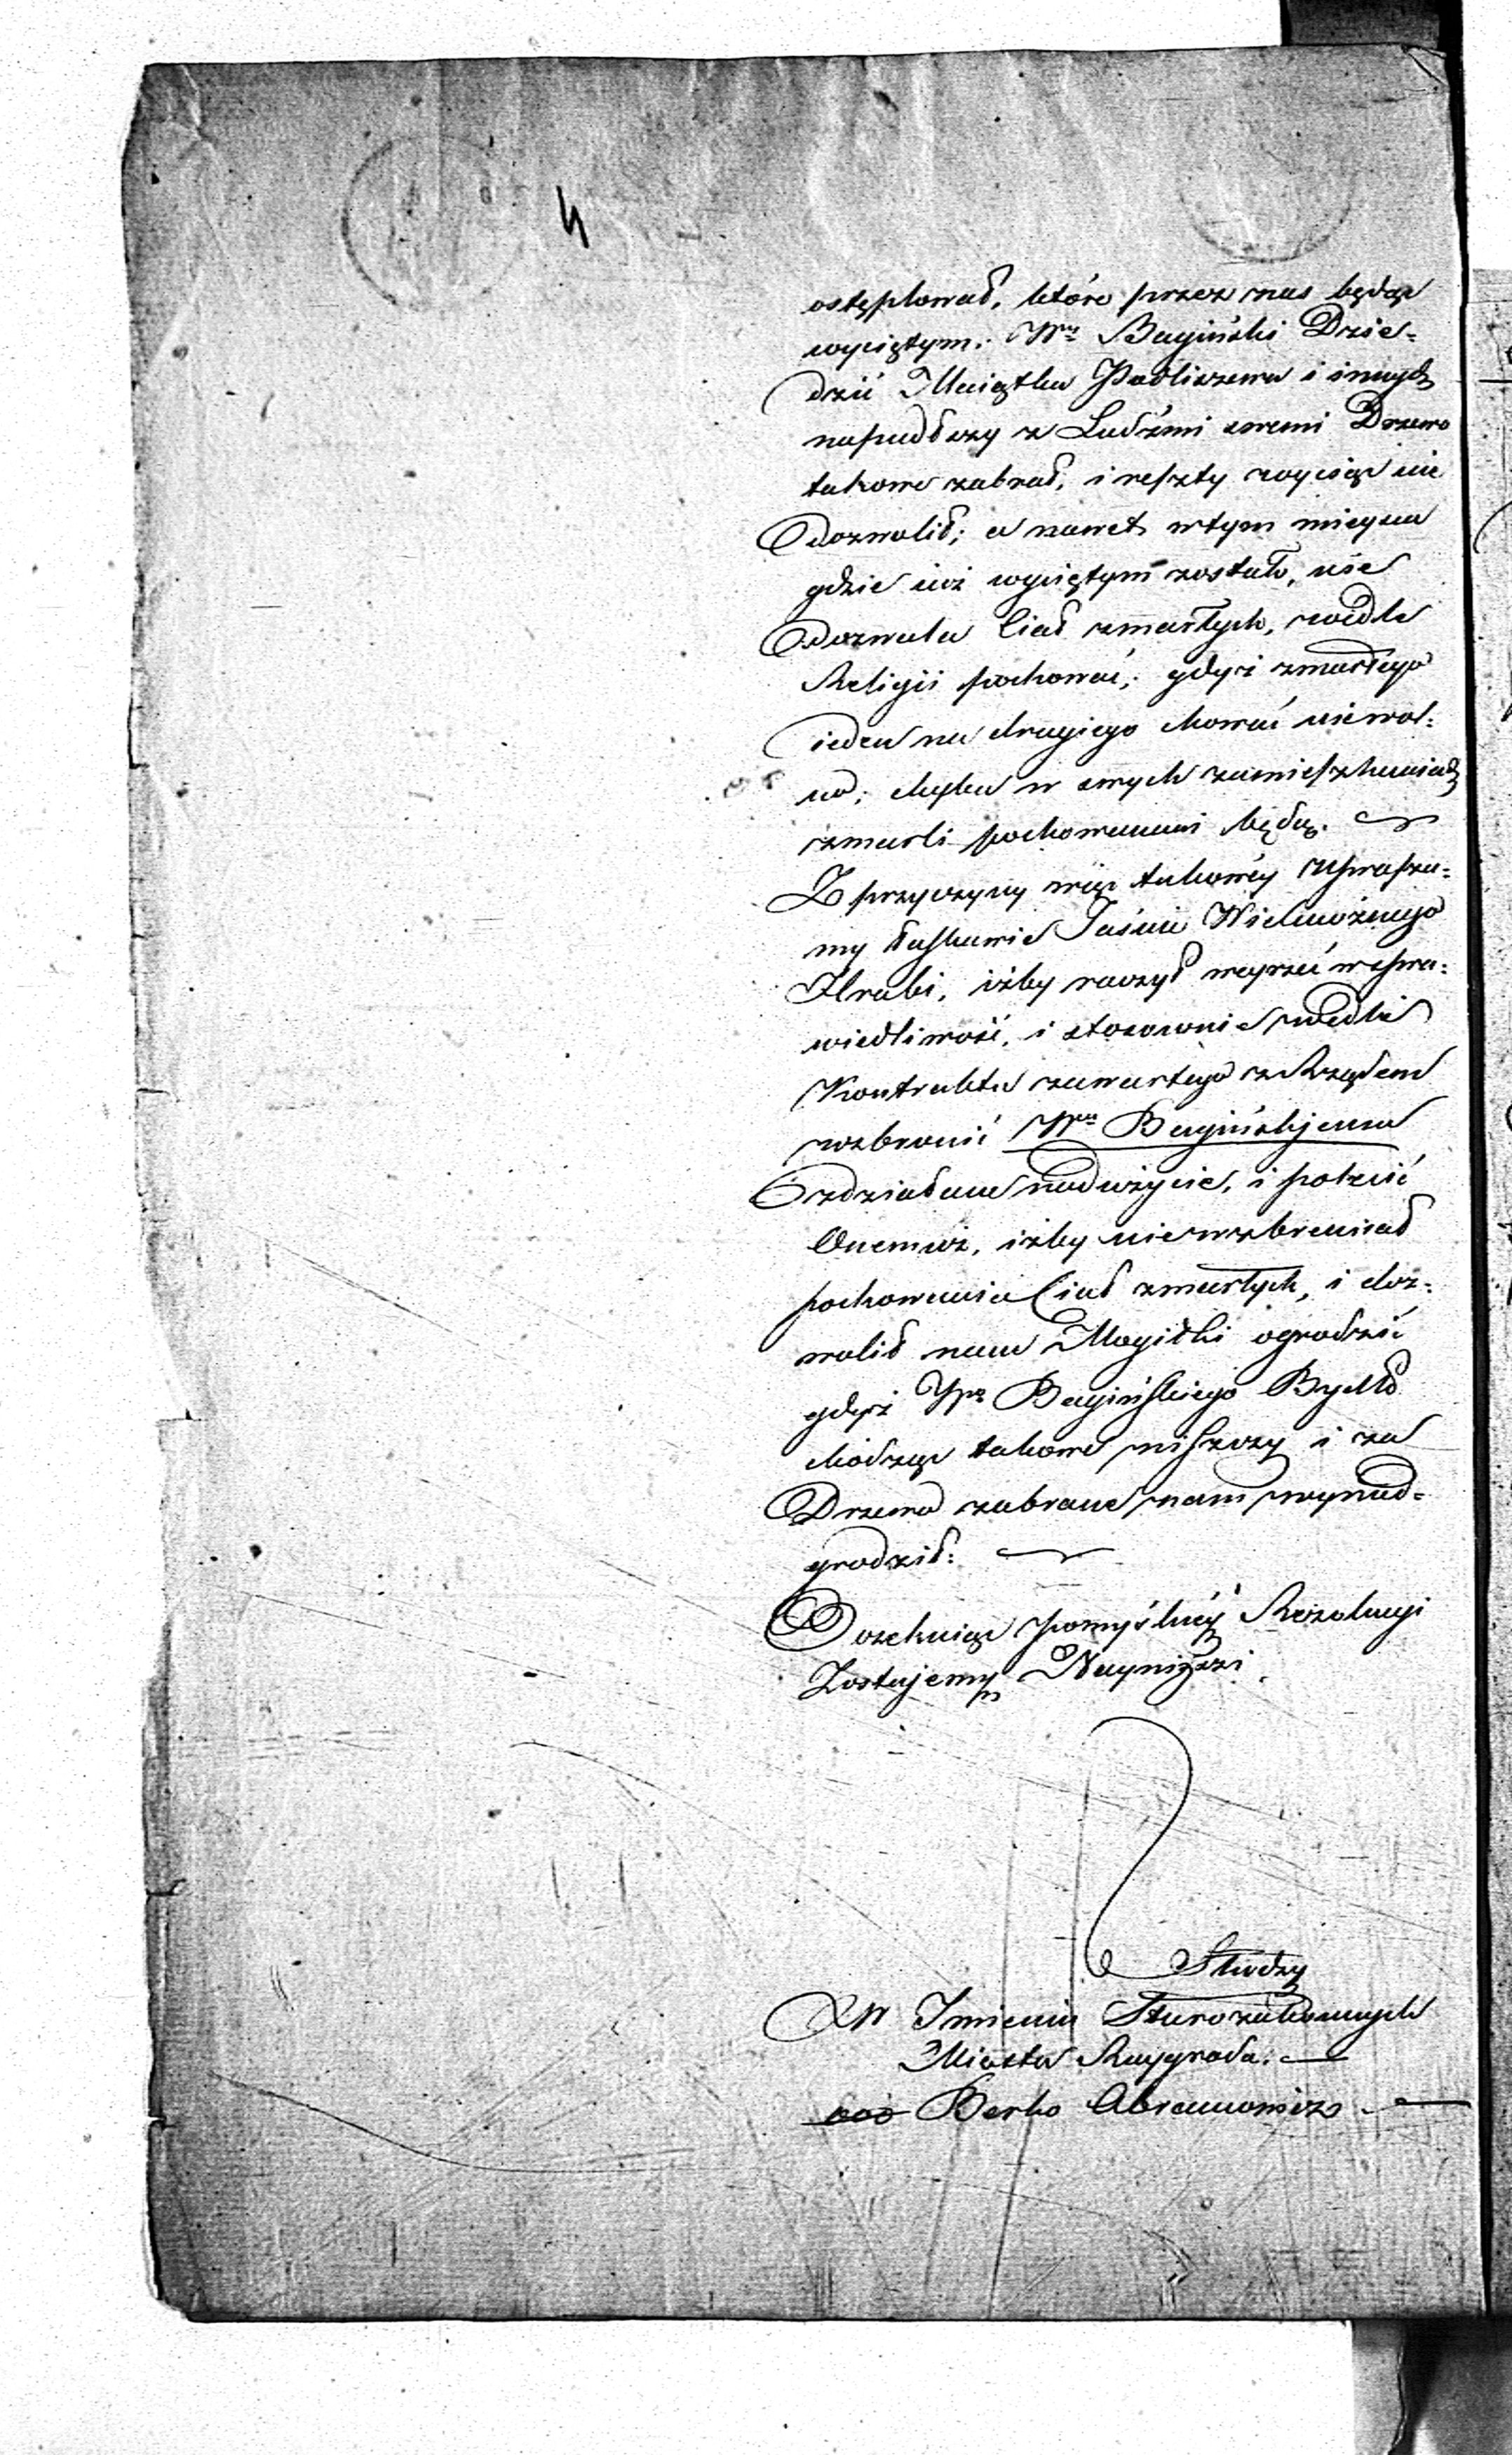 4
ostęplował, które przez nas będąc
wyciętym: Wny Bagiński Dzie=
dzić Maiątku Podliszewa i innych
napadłszy z Ludźmi swemi Drzewo
takowe zabrał, i reszty wyciąć nie
dozwolił; a nawet w tym mieyscu
gdzie iuż wyciętym zostało, nie
dozwala Ciał zmarłych, wedle
Religii pochować; gdyż zmarłego
ieden na drugiego chować niewol=
no; chyba w swych zamieszkaniach
zmarli pochowanemi będą.
Z przyczyny więc takowéy upraasza=
my łaskawie Jaśnie Wielmożnego
Hrabi, iżby raczył weyrzeć w spra=
wiedliwość, i stosownie wedle
Kontraktu zawartego z Rządem
wzbronić Wmu Bagińskjemu
zdziałane nadużycie, i polecić
Onemuż, iżby nie wzbraniał
pochowania Ciał zmarłych, i doz=
wolił nam Mogiłki ogrodzić
gdyż Wgo Bagińskiego Bydło
chodząc takowe niszczy i za
Drzewo zabrane nam wynad=
grodził:
Oczekuiąc pomyślnéy Rezolucyi
Zostajemy Nayniższi
Słudzy
W Imieniu Starozakonnych
Miasta Raygroda:
Berko Abramowicz